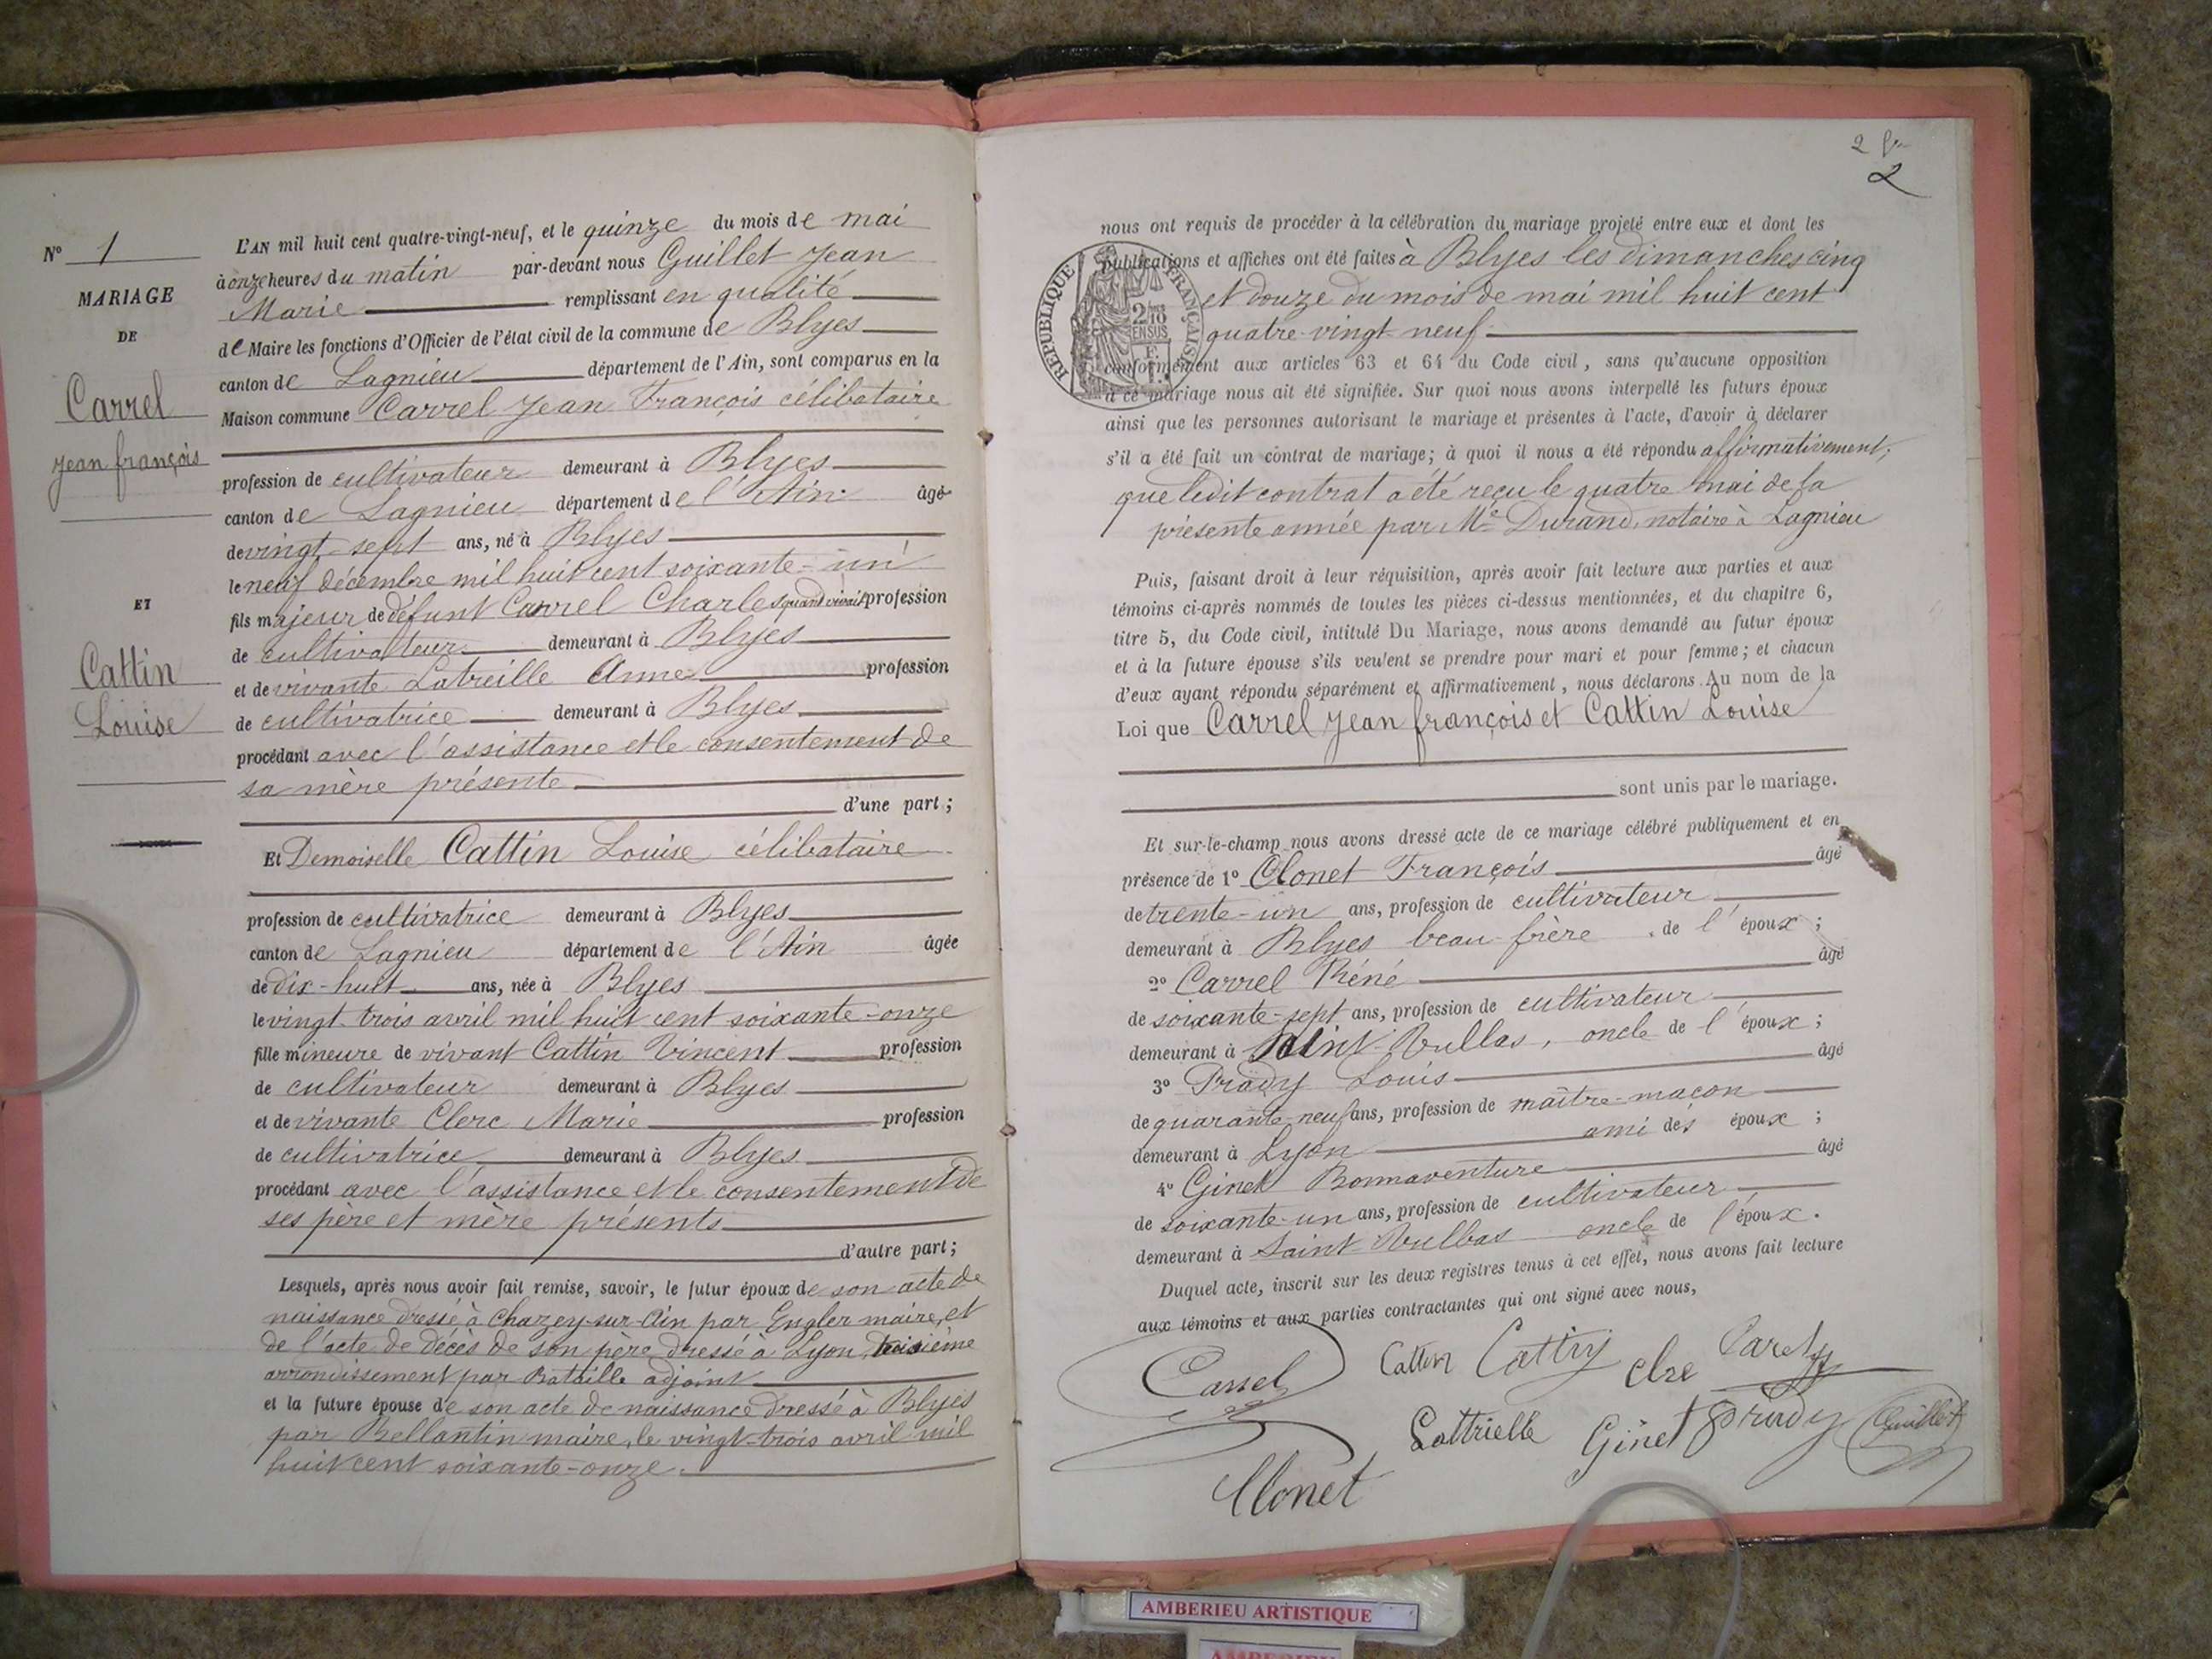 N° 1
MARIAGE
DE
Carrel
Jean françois
ET
Cattin
Louise
L'AN mil huit cent quatre-vingt-neuf, et le quinze du mois de mai
à onze heures du matin par-devant nous Guillet Jean
Marie remplissant en qualité
de Maire les fonctions d'Officier de l'état civil de la commune de Blyes
canton de Lagnieu département de l'Ain, sont comparus en la
Maison commune Carrel Jean François célibataire
profession de cultivateur demeurant à Blyes
canton de Lagnieu département de l'Ain âgé
de vingt-sept ans, né à Blyes
le neuf décembre mil huit cent soixante-un
fils majeur de défunt Carrel Charles quand vivait profession
de cultivateur demeurant à Blyes
et de vivante Latreille Anne profession
de cultivatrice demeurant à Blyes
procédant avec l'assistance et le consentement de
sa mère présente
d'une part;
Et Demoiselle Cattin Louise célibataire
profession de cultivatrice demeurant à Blyes
canton de Lagnieu département de l'Ain âgée
de dix-huit ans, née à Blyes
le vingt-trois avril mil huit cent soixante-onze
fille mineure de vivant Cattin Vincent profession
de cultivateur demeurant à Blyes
et de vivante Clerc Marie profession
de cultivatrice demeurant à Blyes
procédant avec l'assistance et le consentement de
ses père et mère présents
d'autre part;
Lesquels, après nous avoir fait remise, savoir, le futur époux de son acte de
naissance dressé à Chazey-sur-Ain par Engler maire, et
de l'acte de décès de son père dressé à Lyon, troisième
arrondissement par Bataille adjoint
et la future épouse de son acte de naissance dressé à Blyes
par Bellantin maire, le vingt-trois avril mil
huit cent soixante-onze.
2
2
nous ont requis de procéder à la célébration du mariage projeté entre eux et dont les
publications et affiches ont été faites à Blyes les dimanches cinq
et douze du mois de mai mil huit cent
quatre-vingt-neuf
RÉPUBLIQUE FRANÇAISE
2/10
EN SUS
conformément aux articles 63 et 64 du Code civil, sans qu'aucune opposition
à ce mariage nous ait été signifiée. Sur quoi nous avons interpellé les futurs époux
ainsi que les personnes autorisant le mariage et présentes à l'acte, d'avoir à déclarer
s'il a été fait un contrat de mariage; à quoi il nous a été répondu affirmativement,
que ledit contrat a été reçu le quatre mai de la
présente année par Me Durand, notaire à Lagnieu
Puis, faisant droit à leur réquisition, après avoir fait lecture aux parties et aux
témoins ci-après nommés de toutes les pièces ci-dessus mentionnées, et du chapitre 6,
titre 5, du Code civil, intitulé Du Mariage, nous avons demandé au futur époux
et à la future épouse s'ils veulent se prendre pour mari et pour femme; et chacun
d'eux ayant répondu séparément et affirmativement, nous déclarons Au nom de la
Loi que Carrel Jean françois et Cattin Louise
sont unis par le mariage.
Et sur-le-champ nous avons dressé acte de ce mariage célébré publiquement et en
présence de 1° Clonet François âgé
de trente-un ans, profession de cultivateur
demeurant à Blyes beau-frère de l'époux;
2° Carrel Réné âgé
de soixante-sept ans, profession de cultivateur
demeurant à Saint Vullas, oncle de l'époux;
3° Prady Louis âgé
de quarante-neuf ans, profession de maître-maçon
demeurant à Lyon ami des époux;
4° Ginet Bonnaventure âgé
de soixante-un ans, profession de cultivateur
demeurant à Saint Vulbas oncle de l'époux.
Duquel acte, inscrit sur les deux registres tenus à cet effet, nous avons fait lecture
aux témoins et aux parties contractantes qui ont signé avec nous,
Carrel Cattin Cattin
Lattrielle Ginet Prady Guillet
Clonet
AMBERIEU ARTISTIQUE
AMBERIEU